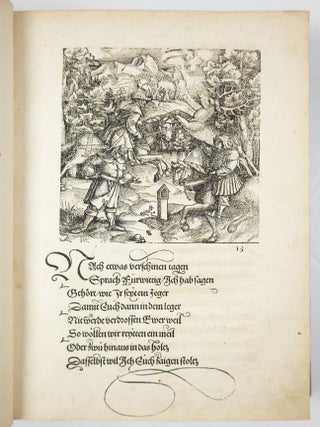 13
Nach etwas verschinen tagen
Sprach Fürwittig / Ich hab sagen
Gehört / wie Ir seyt ein Jeger
Damit Euch dann in dem leger
Nit werde verdrossen Ewer weil
So wöllen wir reyten ein meil
Oder zwů hinaus in das holtz
Daselbst wil Ich Euch zaigen stoltz